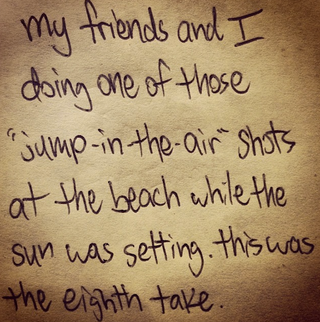 my friends and I
doing one of those
"jump-in-the-air" shots
at the beach while the
sun was setting. this was
the eighth take.